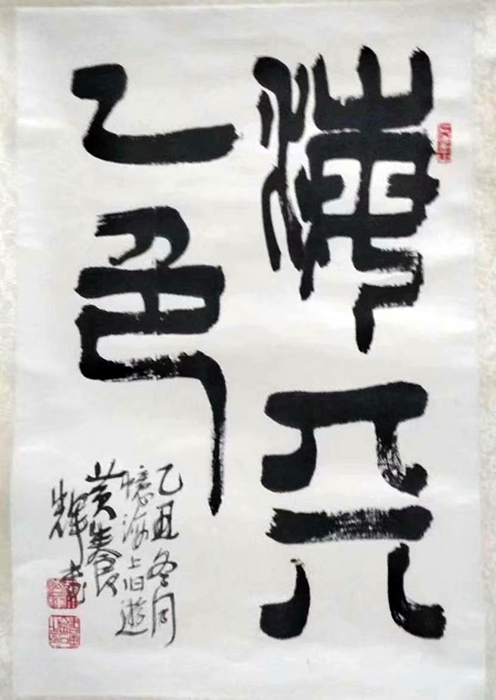 海天
乙色
乙丑冬同
憶海上旧遊
黄養
輝書